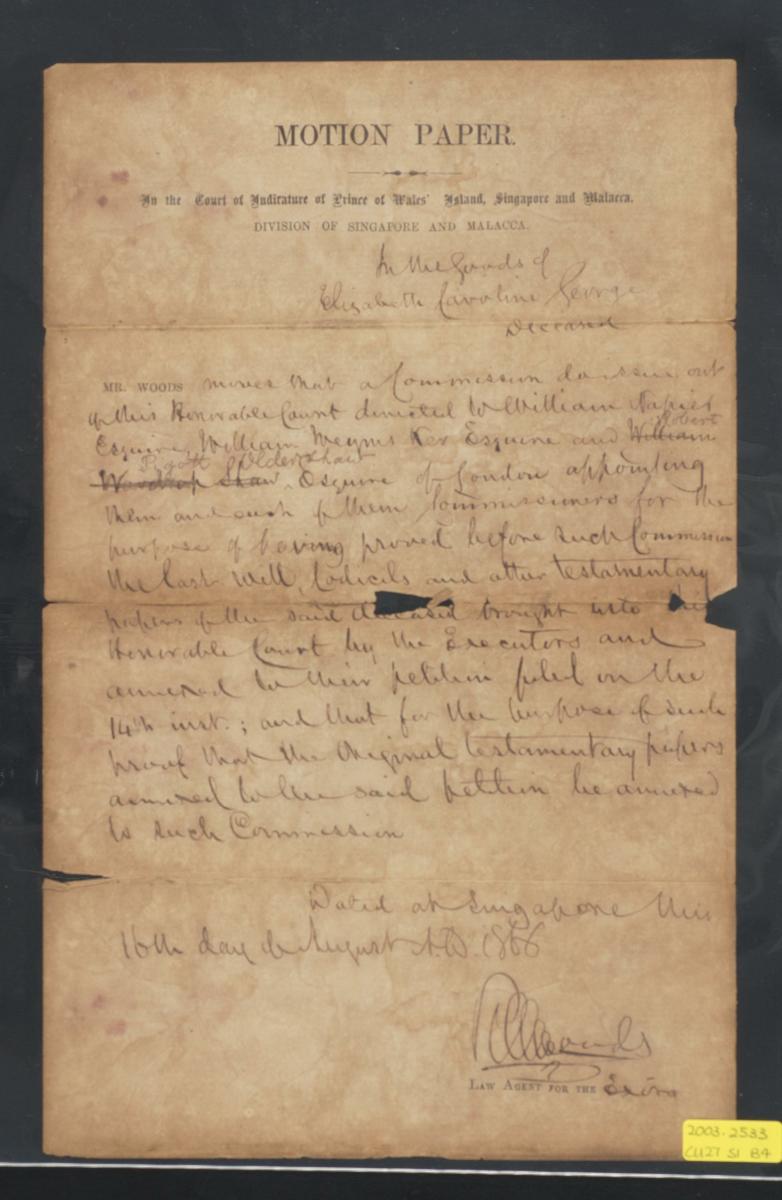 MOTION PAPER.
In the Court of Judicature of Prince of Wales' Island, Singapore and Malacca.
DIVISION OF SINGAPORE AND MALACCA.
In the Goods of
Elizabeth Caroline George
Deceased
MR. WOODS moves that a Commission do issue out
of this Honorable Court directed to William Napier
Robert
Esquire, William Wemyss Ker Esquire and William
Pigott Oldershaw
Woodrop Shaw, Esquire of London appointing
them and each of them Commissioners for the
purpose of having proved before such Commission
the last Will, Codicils and other testamentary
papers of the said deceased brought into this
Honorable Court by the Executors and
annexed to their petition filed on the
14th inst.; and that for the purpose of such
proof that the Original testamentary papers
annexed to the said petition be annexed
to such Commission
Dated at Singapore this
16th day of August A.D. 1866
Woods
LAW AGENT FOR THE Exors
2003.2533
CU27 S1 B4